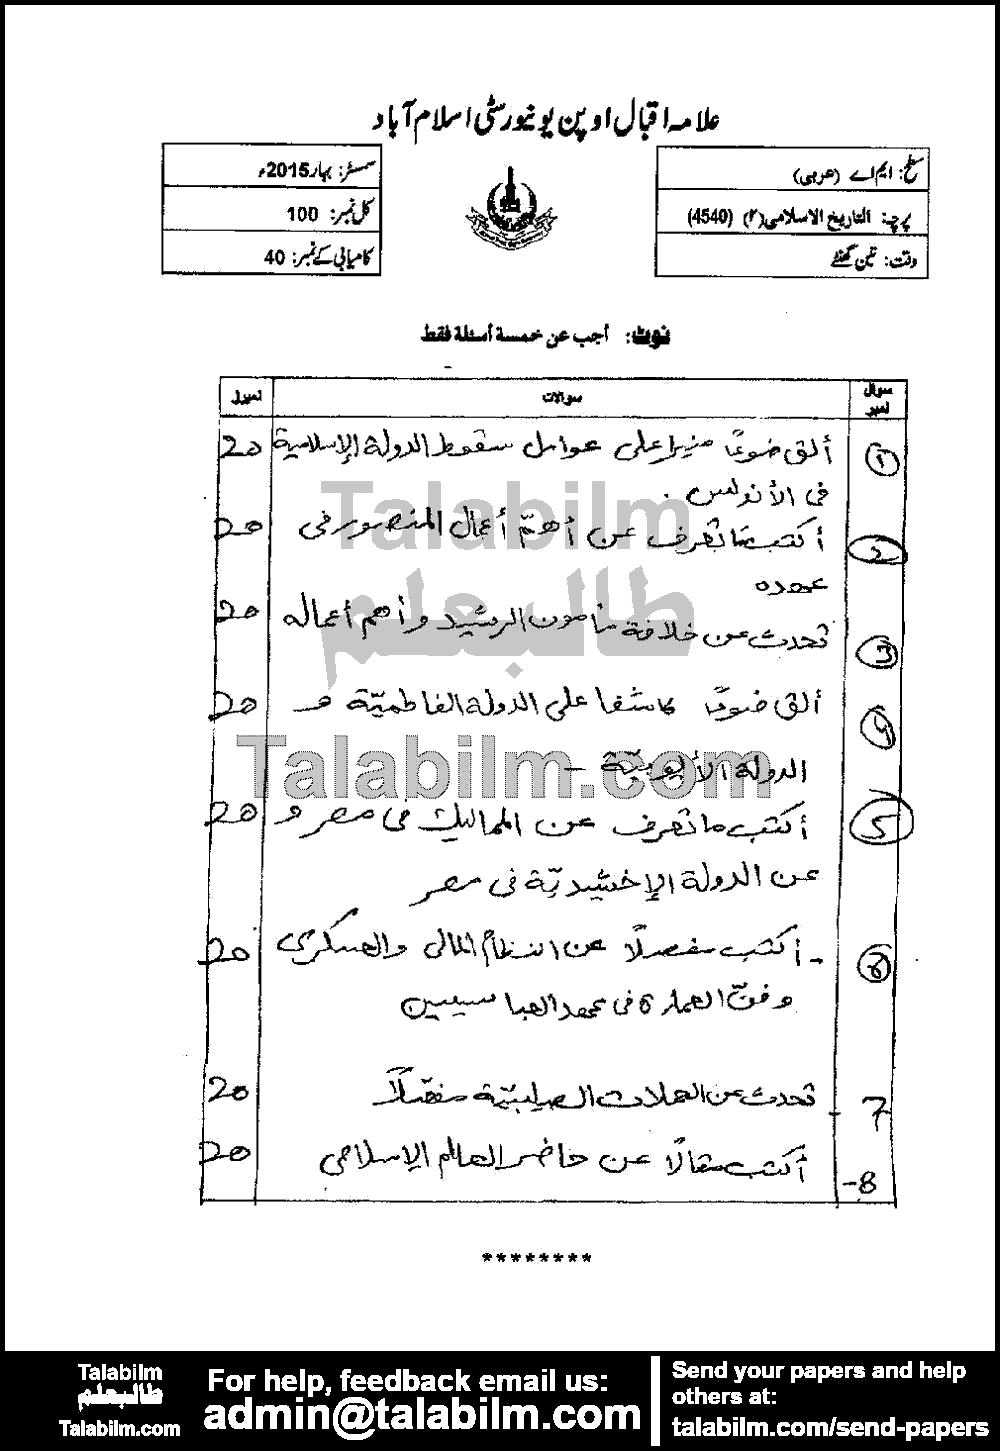 علامہ اقبال اوپن یونیورسٹی اسلام آباد
سطح: ایم اے (عربی)
پرچہ: التاریخ الاسلامی (۲) (4540)
وقت: تین گھنٹے
سمسٹر: بہار 2015ء
کل نمبر: 100
کامیابی کے نمبر: 40
نوٹ: أجب عن خمسة أسئلة فقط
سوال نمبر سوالات نمبرز
① ألق ضوءًا منيرا على عوامل سقوط الدولة الإسلامية 20
فى الأندلس.
② أكتب ما تعرف عن أهمّ أعمال المنصور فى 20
عهده
③ تحدث عن خلافة مأمون الرشيد وأهم أعماله 20
④ ألق ضوءًا كاشفا على الدولة الفاطميّة و 20
الدولة الأيوبيّة -
⑤ أكتب ما تعرف عن المماليك فى مصر و 20
عن الدولة الإخشيديّة فى مصر
⑥ - أكتب مفصلًا عن النظام المالى والعسكرى 20
وفنّ العمارة فى عهد العباسيين
7 - تحدث عن الحملات الصليبيّة مفصّلًا 20
8 - أكتب مقالًا عن حاضر العالم الإسلامى 20
********
Talabilm
طالبعلم
Talabilm.com
Talabilm
طالبعلم
Talabilm.com
For help, feedback email us:
admin@talabilm.com
Send your papers and help
others at:
talabilm.com/send-papers